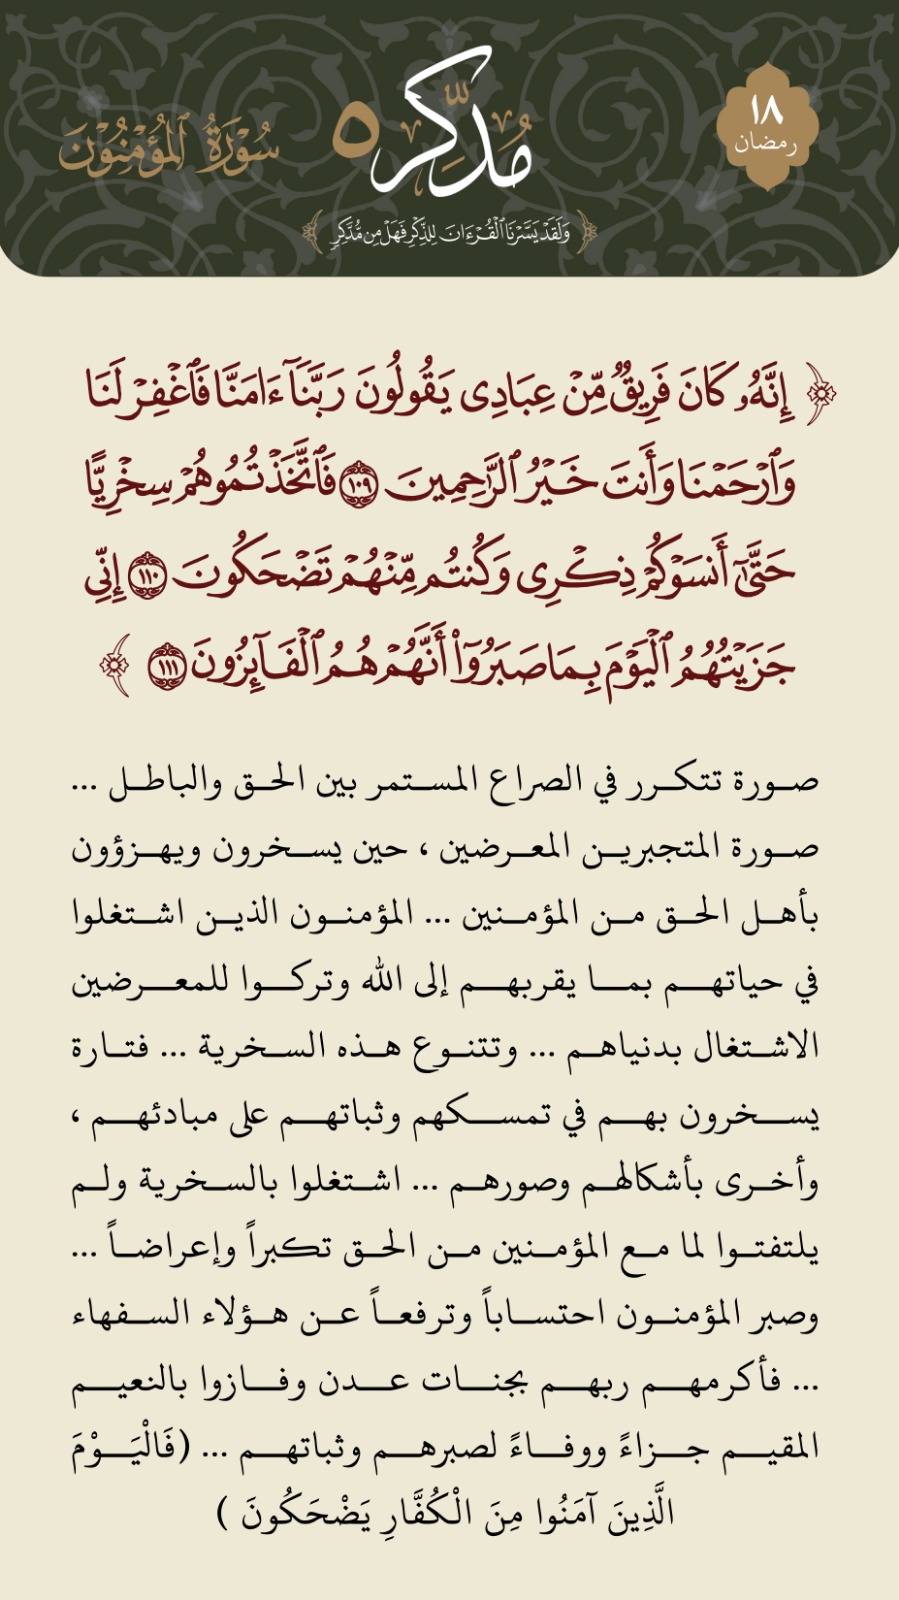 ١٨
رمضان
مُدَّكِر ٥
سُورَةُ ٱلْمُؤْمِنُونَ
وَلَقَدْ يَسَّرْنَا ٱلْقُرْءَانَ لِلذِّكْرِ فَهَلْ مِن مُّدَّكِرٍ
﴿ إِنَّهُۥ كَانَ فَرِيقٌ مِّنْ عِبَادِى يَقُولُونَ رَبَّنَآ ءَامَنَّا فَٱغْفِرْ لَنَا
وَٱرْحَمْنَا وَأَنتَ خَيْرُ ٱلرَّٰحِمِينَ ١٠٩ فَٱتَّخَذْتُمُوهُمْ سِخْرِيًّا
حَتَّىٰٓ أَنسَوْكُمْ ذِكْرِى وَكُنتُم مِّنْهُمْ تَضْحَكُونَ ١١٠ إِنِّى
جَزَيْتُهُمُ ٱلْيَوْمَ بِمَا صَبَرُوٓا۟ أَنَّهُمْ هُمُ ٱلْفَآئِزُونَ ١١١ ﴾
صورة تتكرر في الصراع المستمر بين الحق والباطل ...
صورة المتجبرين المعرضين ، حين يسخرون ويهزؤون
بأهل الحق من المؤمنين ... المؤمنون الذين اشتغلوا
في حياتهم بما يقربهم إلى الله وتركوا للمعرضين
الاشتغال بدنياهم ... وتتنوع هذه السخرية ... فتارة
يسخرون بهم في تمسكهم وثباتهم على مبادئهم ،
وأخرى بأشكالهم وصورهم ... اشتغلوا بالسخرية ولم
يلتفتوا لما مع المؤمنين من الحق تكبراً وإعراضاً ...
وصبر المؤمنون احتساباً وترفعاً عن هؤلاء السفهاء
... فأكرمهم ربهم بجنات عدن وفازوا بالنعيم
المقيم جزاءً ووفاءً لصبرهم وثباتهم ... (فَالْيَوْمَ
الَّذِينَ آمَنُوا مِنَ الْكُفَّارِ يَضْحَكُونَ )